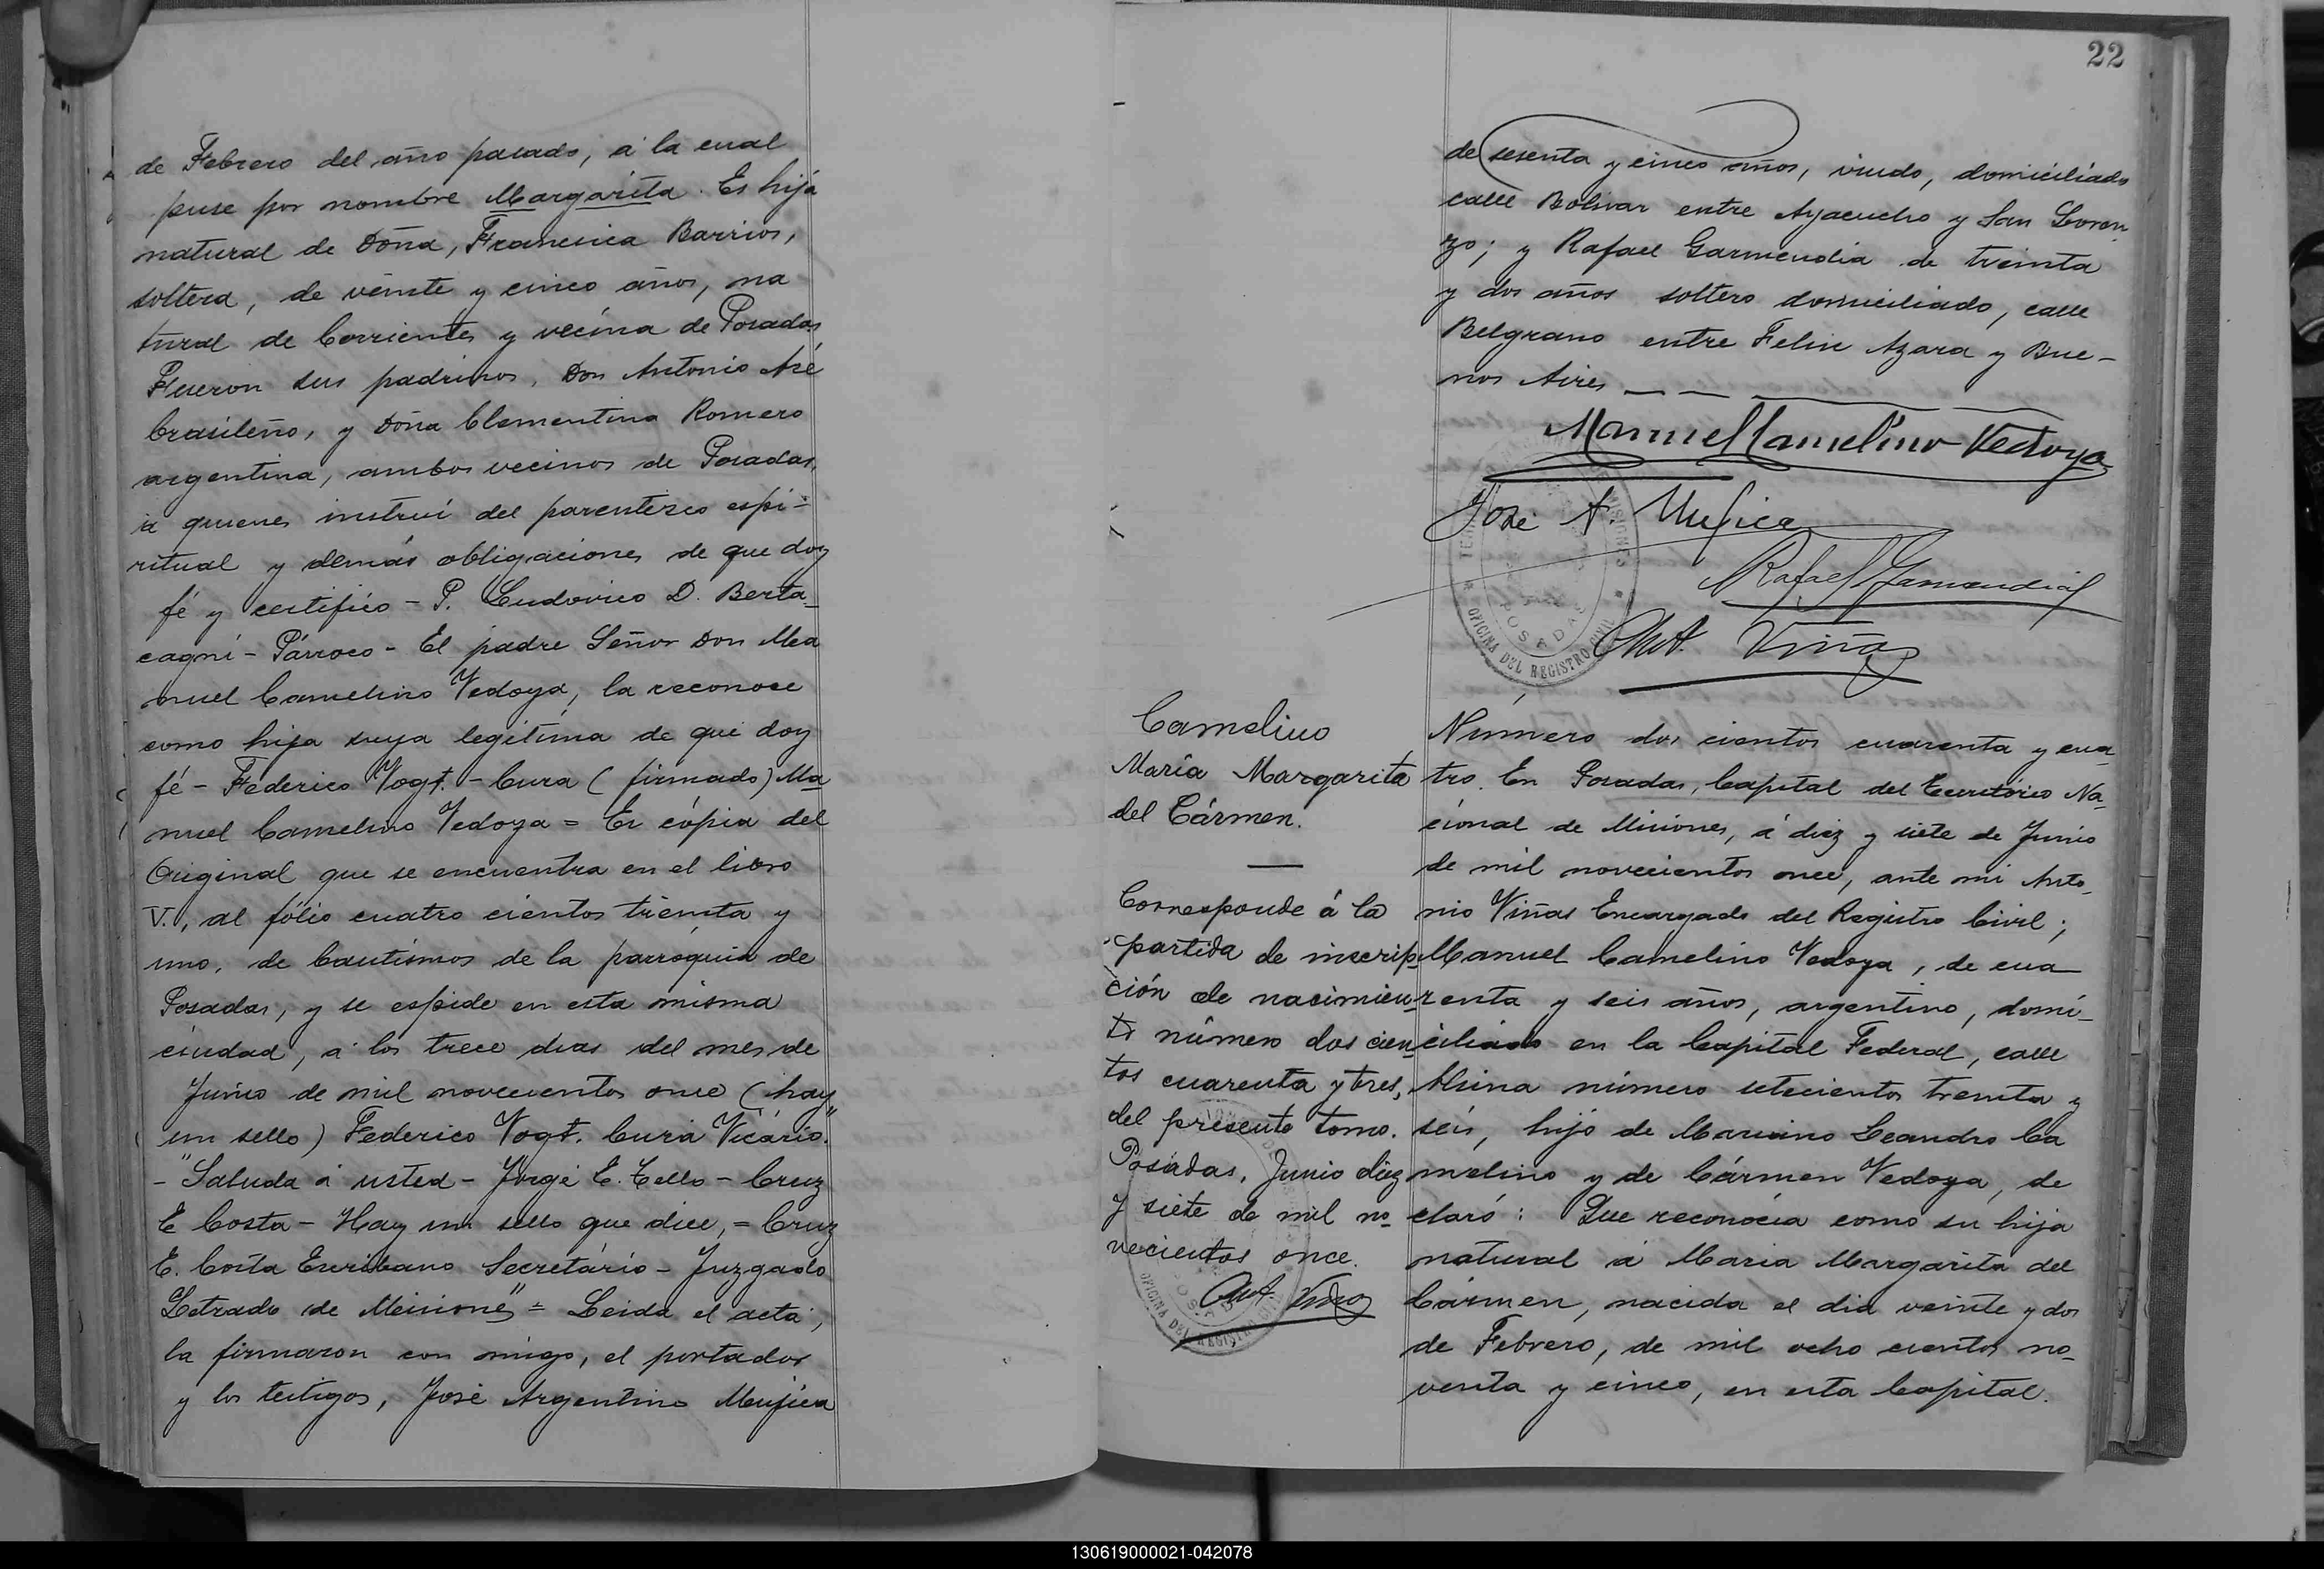 de Febrero del año pasado, á la cual
puse por nombre Margarita. Es hija
natural de Doña, Francisca Barrios,
soltera, de veinte y cinco años, na
tural de Corrientes y vecina de Posadas
Fueron sus padrinos, Don Antonio Asé
brasileño, y Doña Clementina Romero
argentina, ambos vecinos de Posadas,
á quienes instruí del parentesco espi-
ritual y demás obligaciones de que doy
fé y certifico - P. Ludovico D. Berta_
cagni - Párroco - El padre Señor Don Ma
nuel Camelino Vedoya, la reconoce
como hija suya legítima de que doy
fé - Federico Vogt. - Cura (firmado) Ma
nuel Camelino Vedoya = Es cópia del
Original que se encuentra en el libro
V., al fólio cuatro cientos treinta y
uno, de bautismos de la parroquia de
Posadas, y se espide en esta misma
ciudad, á los trece dias del mes de
Junio de mil novecientos once (hay
un sello) Federico Vogt. Cura Vicário."
-"Saluda á usted - Jorge E. Tello - Cruz
E Costa - Hay un sello que dice, = Cruz
E. Costa Escribano Secretário - Juzgado
Letrado de Misiones" = Leida el acta,
la firmaron con migo, el portador
y los testigos, José Argentino Mujica
22
de sesenta y cinco años, viudo, domiciliado
calle Bolivar entre Ayacucho y San Loren
zo; y Rafael Garmendia de treinta
y dos años soltero domiciliado, calle
Belgrano entre Felix Azara y Bue-
nos Aires
Manuel Camelino Vedoya
José A. Mujica
Rafael Garmendia
Ant. Viñas
OFICINA DEL REGISTRO CIVIL
POSADAS
Camelino
María Margarita
del Cármen.
Corresponde á la
partida de inscrip-
ción de nacimien-
to número dos cien-
tos cuarenta y tres,
del presente tomo.
Posadas, Junio diez
y siete de mil no
vecientos once.
Ant. Viñas
Número dos cientos cuarenta y cua_
tro. En Posadas, Capital del Territorio Na_
cional de Misiones, á diez y siete de Junio
de mil novecientos once, ante mi Anto_
nio Viñas Encargado del Registro Civil;
Manuel Camelino Vedoya, de cua
renta y seis años, argentino, domi_
ciliado en la Capital Federal, calle
Alsina número setecientos treinta y
seis, hijo de Mariano Leandro Ca
melino y de Cármen Vedoya, de
claró: Que reconocia como su hija
natural á Maria Margarita del
Cármen, nacida el dia veinte y dos
de Febrero, de mil ocho cientos no_
venta y cinco, en esta Capital.
130619000021-042078